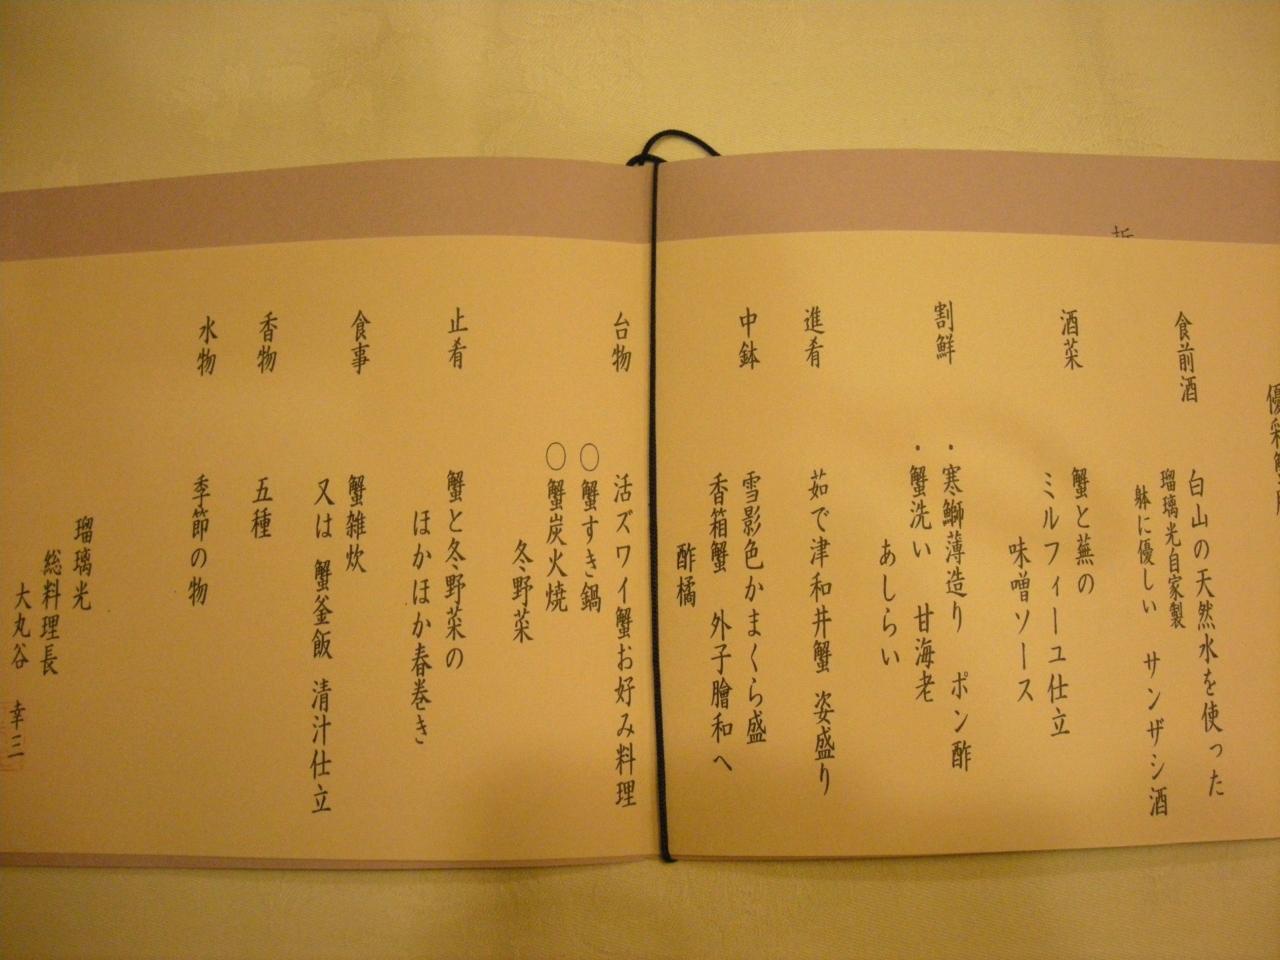 食前酒
白山の天然水を使った
瑠璃光自家製
躰に優しい サンザシ酒
酒菜
蟹と蕪の
ミルフィーユ仕立
味噌ソース
割鮮
・寒鰤薄造り ポン酢
・蟹洗い 甘海老
あしらい
進肴
茹で津和井蟹 姿盛り
中鉢
雪影色かまくら盛
香箱蟹 外子膾和へ
酢橘
台物
活ズワイ蟹お好み料理
○蟹すき鍋
○蟹炭火焼
冬野菜
止肴
蟹と冬野菜の
ほかほか春巻き
食事
蟹雑炊
又は 蟹釜飯 清汁仕立
香物
五種
水物
季節の物
瑠璃光
総料理長
大丸谷 幸三